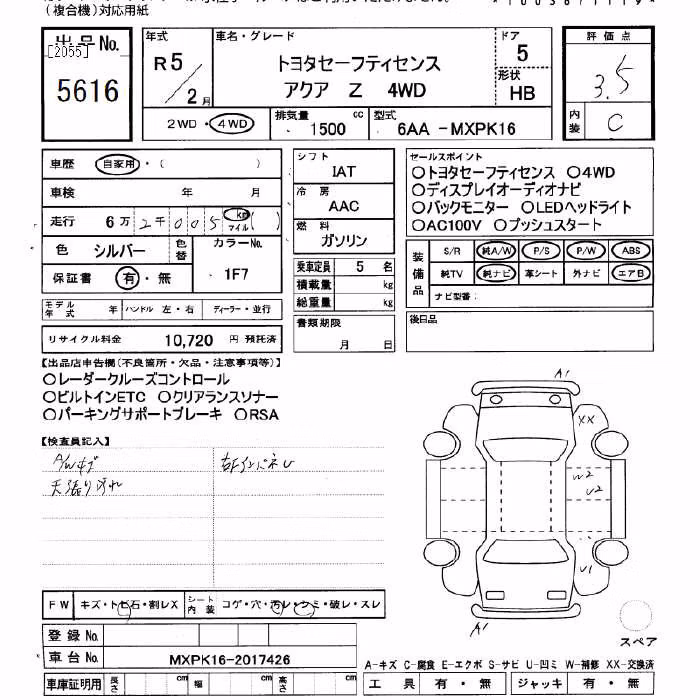 (複合機)対応用紙
出品No. [2055] 5616
年式 R5/2月
車名・グレード トヨタセーフティセンス
アクア Z 4WD
ドア 5
形状 HB
評価点 3.5
内装 C
2WD・4WD 排気量 1500 cc 型式 6AA -MXPK16
車歴 自家用・( )
車検 年 月
走行 6万2千005 km マイル ( )
色 シルバー 色替 カラーNo. 1F7
保証書 有・無
モデル年式 年 ハンドル 左・右 ディーラー・並行
リサイクル料金 10,720 円 預託済
シフト IAT
冷房 AAC
燃料 ガソリン
乗車定員 5 名
積載量 kg
総重量 kg
書類期限 月 日
セールスポイント
○トヨタセーフティセンス ○4WD
○ディスプレイオーディオナビ
○バックモニター ○LEDヘッドライト
○AC100V ○プッシュスタート
装備品 S/R 純A/W P/S P/W ABS
純TV 純ナビ 革シート 外ナビ エアB
ナビ型番:
後日品
【出品店申告欄(不良箇所・欠品・注意事項等)】
○レーダークルーズコントロール
○ビルトインETC ○クリアランスソナー
○パーキングサポートブレーキ ○RSA
【検査員記入】
A/Wキズ 右FインパネU
天張り汚れ
A1
XX
W2
U2
U1
A1
スペア
FW キズ・トビ石・割レX シート内装 コゲ・穴・汚レ・シミ・破レ・スレ
登録No.
車台No. MXPK16-2017426
車庫証明用 長さ cm 幅 cm 高さ cm
A-キズ C-腐食 E-エクボ S-サビ U-凹ミ W-補修 XX-交換済
工具 有・無 ジャッキ 有・無